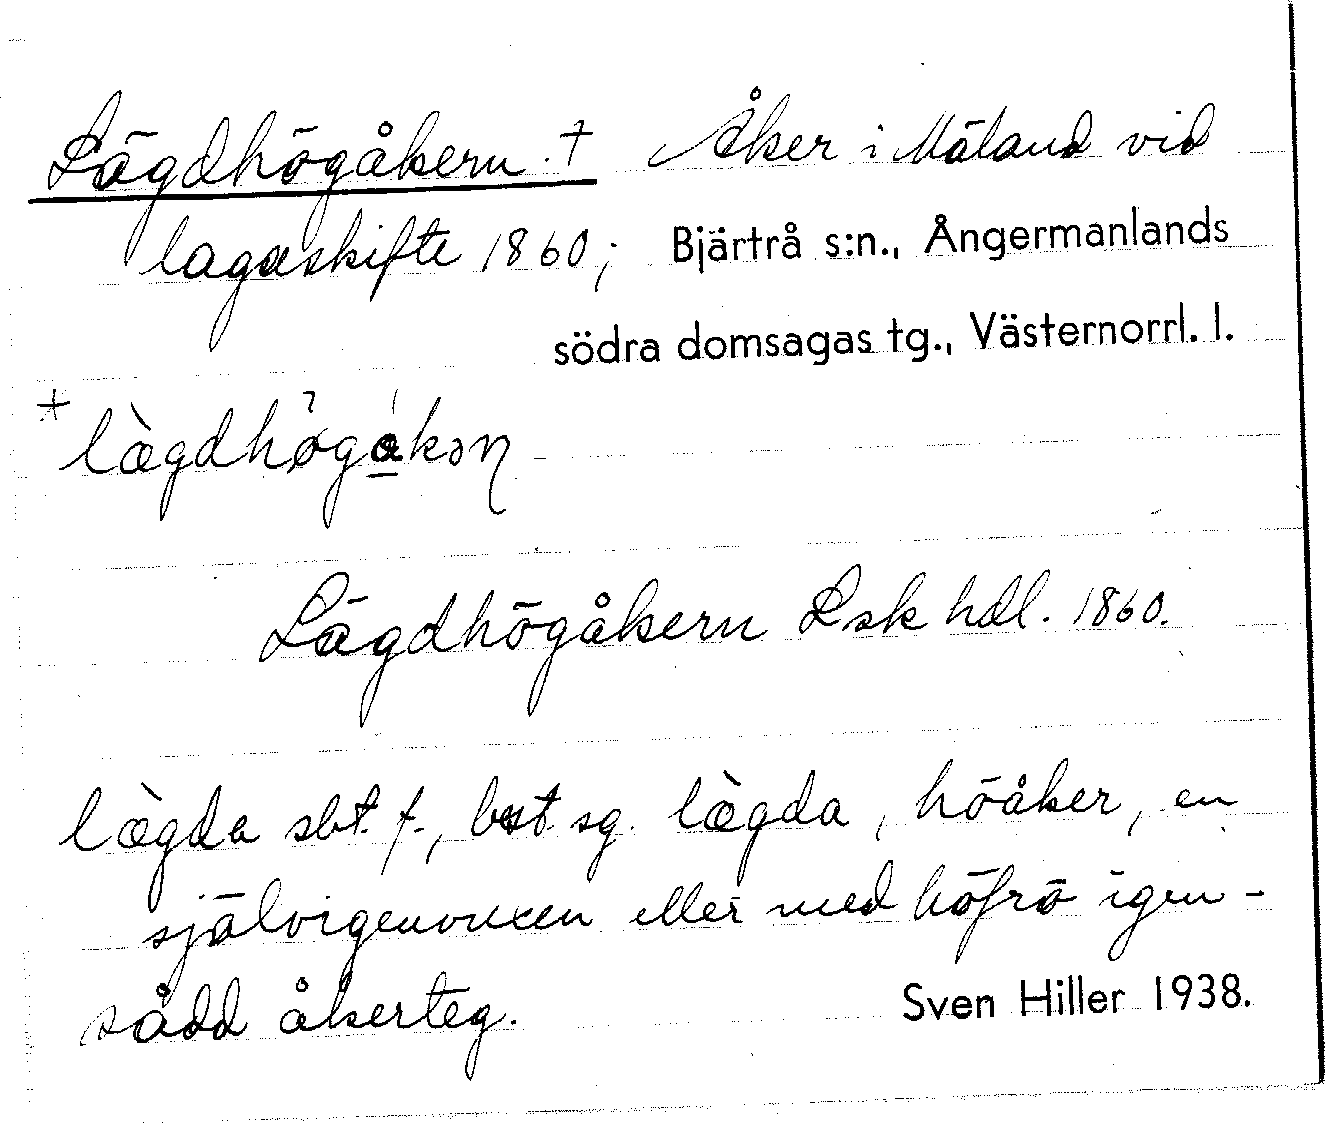 Lägdhögåkern. † Åker i Mäland vid
lagaskifte 1860; Bjärtrå s:n., Ångermanlands
södra domsagas tg., Västernorrl. l.
† lægdhøgakən
Lägdhögåkern Lsk hdl. 1860.
lægda sbt. f., bst sg. lægda, höåker, en
självigenvuxen eller med höfrö igen-
sådd åkerteg. Sven Hiller 1938.